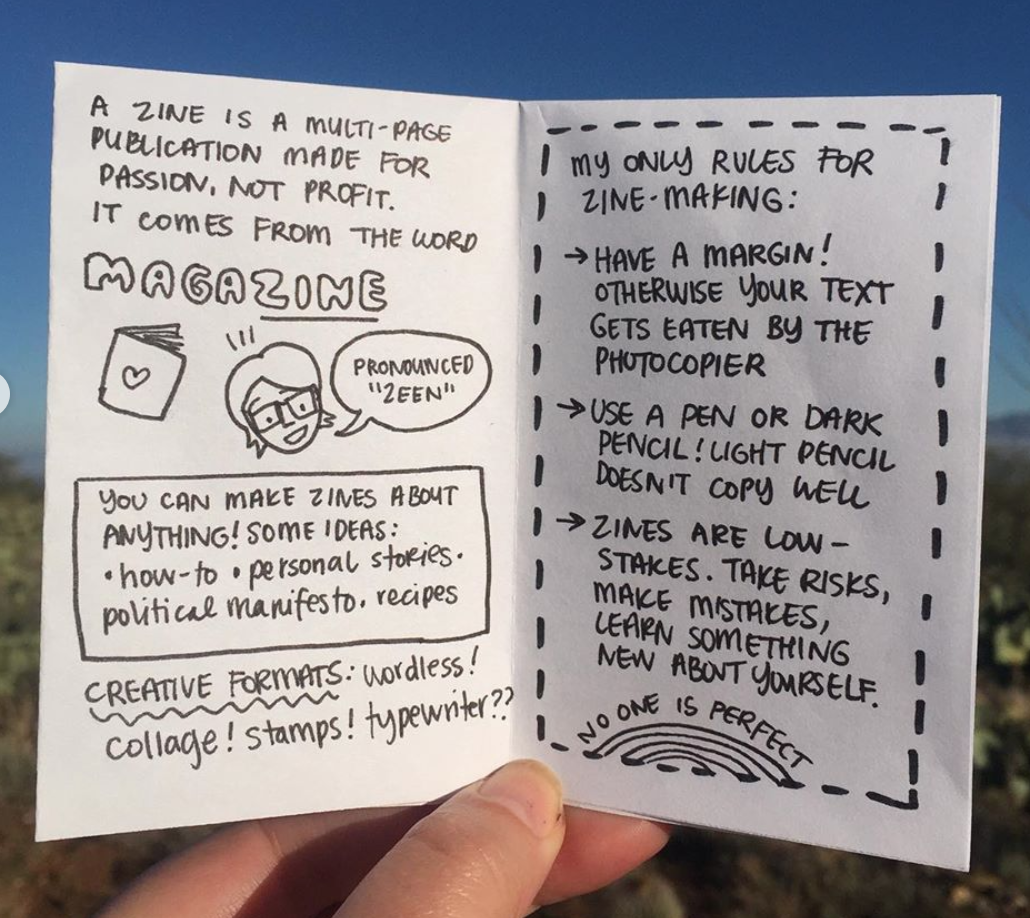 A ZINE IS A MULTI-PAGE
PUBLICATION MADE FOR
PASSION, NOT PROFIT.
IT COMES FROM THE WORD
MAGAZINE
PRONOUNCED
"ZEEN"
YOU CAN MAKE ZINES ABOUT
ANYTHING! SOME IDEAS:
• how-to • personal stories •
political manifesto • recipes
CREATIVE FORMATS: wordless!
collage! stamps! typewriter??
MY ONLY RULES FOR
ZINE-MAKING:
→ HAVE A MARGIN!
OTHERWISE YOUR TEXT
GETS EATEN BY THE
PHOTOCOPIER
→ USE A PEN OR DARK
PENCIL! LIGHT PENCIL
DOESN'T COPY WELL
→ ZINES ARE LOW-
STAKES. TAKE RISKS,
MAKE MISTAKES,
LEARN SOMETHING
NEW ABOUT YOURSELF.
NO ONE IS PERFECT